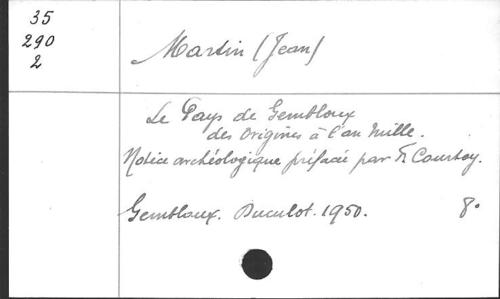 35
290
2
Martin (Jean)
Le Pays de Gembloux
des Origines à l'an mille.
Notice archéologique préfacée par F. Courtoy.
Gembloux. Duculot. 1950. 8°